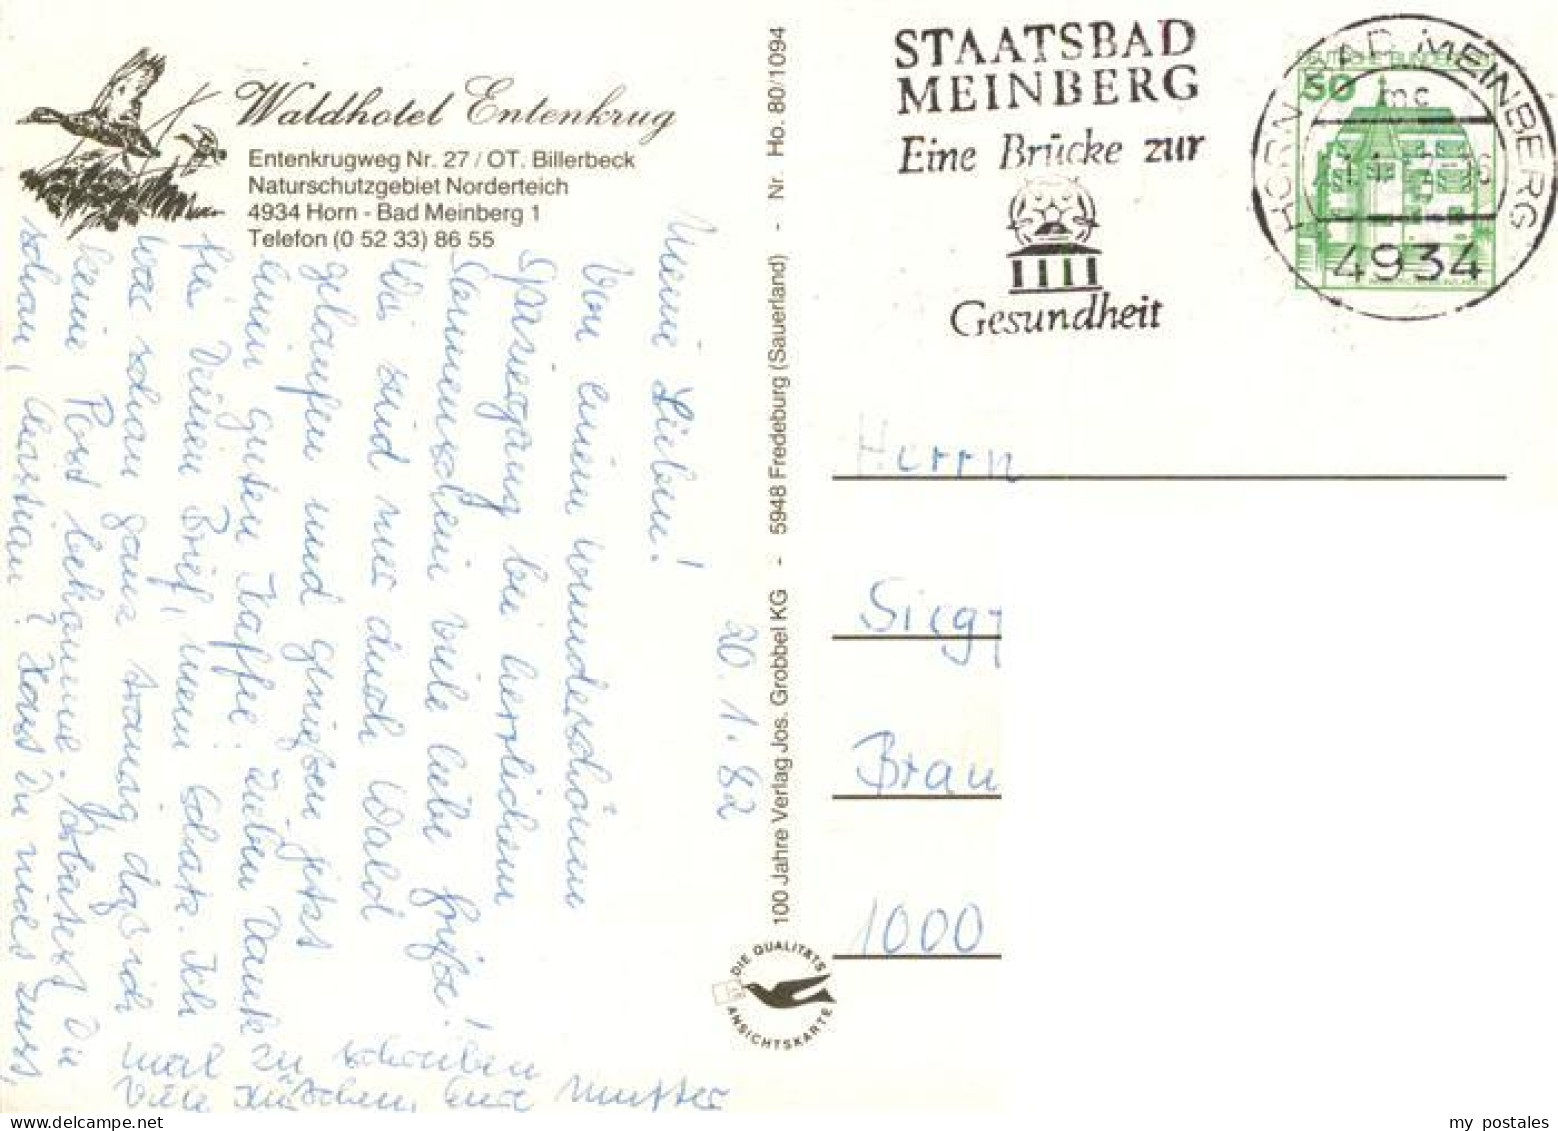 Waldhotel Entenkrug
Entenkrugweg Nr. 27 / OT. Billerbeck
Naturschutzgebiet Norderteich
4934 Horn - Bad Meinberg 1
Telefon (0 52 33) 86 55
20.1.82
Meine Lieben!
Von einem wunderschönen
Spaziergang bei herrlichem
Sonnenschein viele liebe Grüße!
Wir sind nur durch Wald
gelaufen und genießen jetzt
einen guten Kaffee. Lieben Dank
für Deinen Brief, mein Schatz. Ich
war schon ganz traurig daß ich
keine Post bekomme. Arbeitest Du
schon, Christian? Hast Du nichts zus.
mal zu schreiben
Viele Küßchen, Eure Mutter
100 Jahre Verlag Jos. Grobbel KG - 5948 Fredeburg (Sauerland) - Nr. Ho. 80/1094
DIE QUALITÄTS
ANSICHTSKARTE
STAATSBAD
MEINBERG
Eine Brücke zur
Gesundheit
HORN-BAD MEINBERG
mc
4934
50
Herrn
Sieg
Brau
1000
my postales